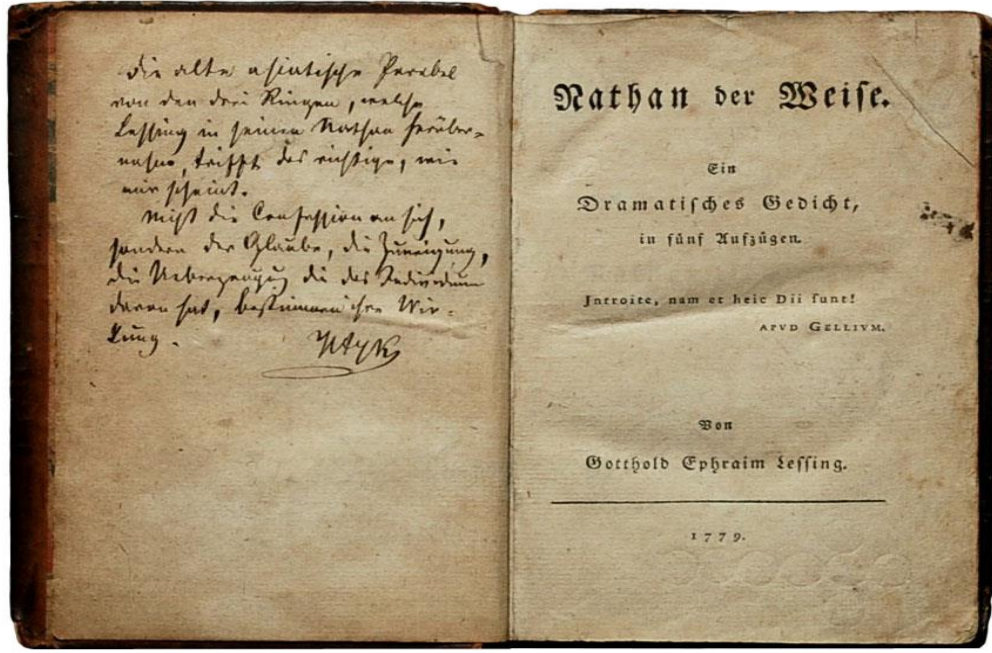 die alte asiatische Parabel
von den drei Ringen, welche
Lessing in seinen Nathan herüber-
nahm, trifft das richtige, wie
mir scheint.
Nicht die Confession an sich,
sondern der Glaube, die Zuneigung,
die Ueberzeugung die das Individuum
daran hat, bestimmen ihre Wir-
kung.
Nathan der Weise.
Ein
Dramatisches Gedicht,
in fünf Aufzügen.
Introite, nam et heic Dii sunt!
APVD GELLIVM.
Von
Gotthold Ephraim Lessing.
1779.